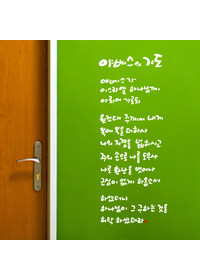 야베스의 기도
야베스가
이스라엘 하나님께
아뢰어 가로되
원컨대 주께서 내게
복에 복을 더하사
나의 지경을 넓히시고
주의 손으로 나를 도우사
나로 환난을 벗어나
근심이 없게 하옵소서
하였더니
하나님이 그 구하는 것을
허락 하셨더라